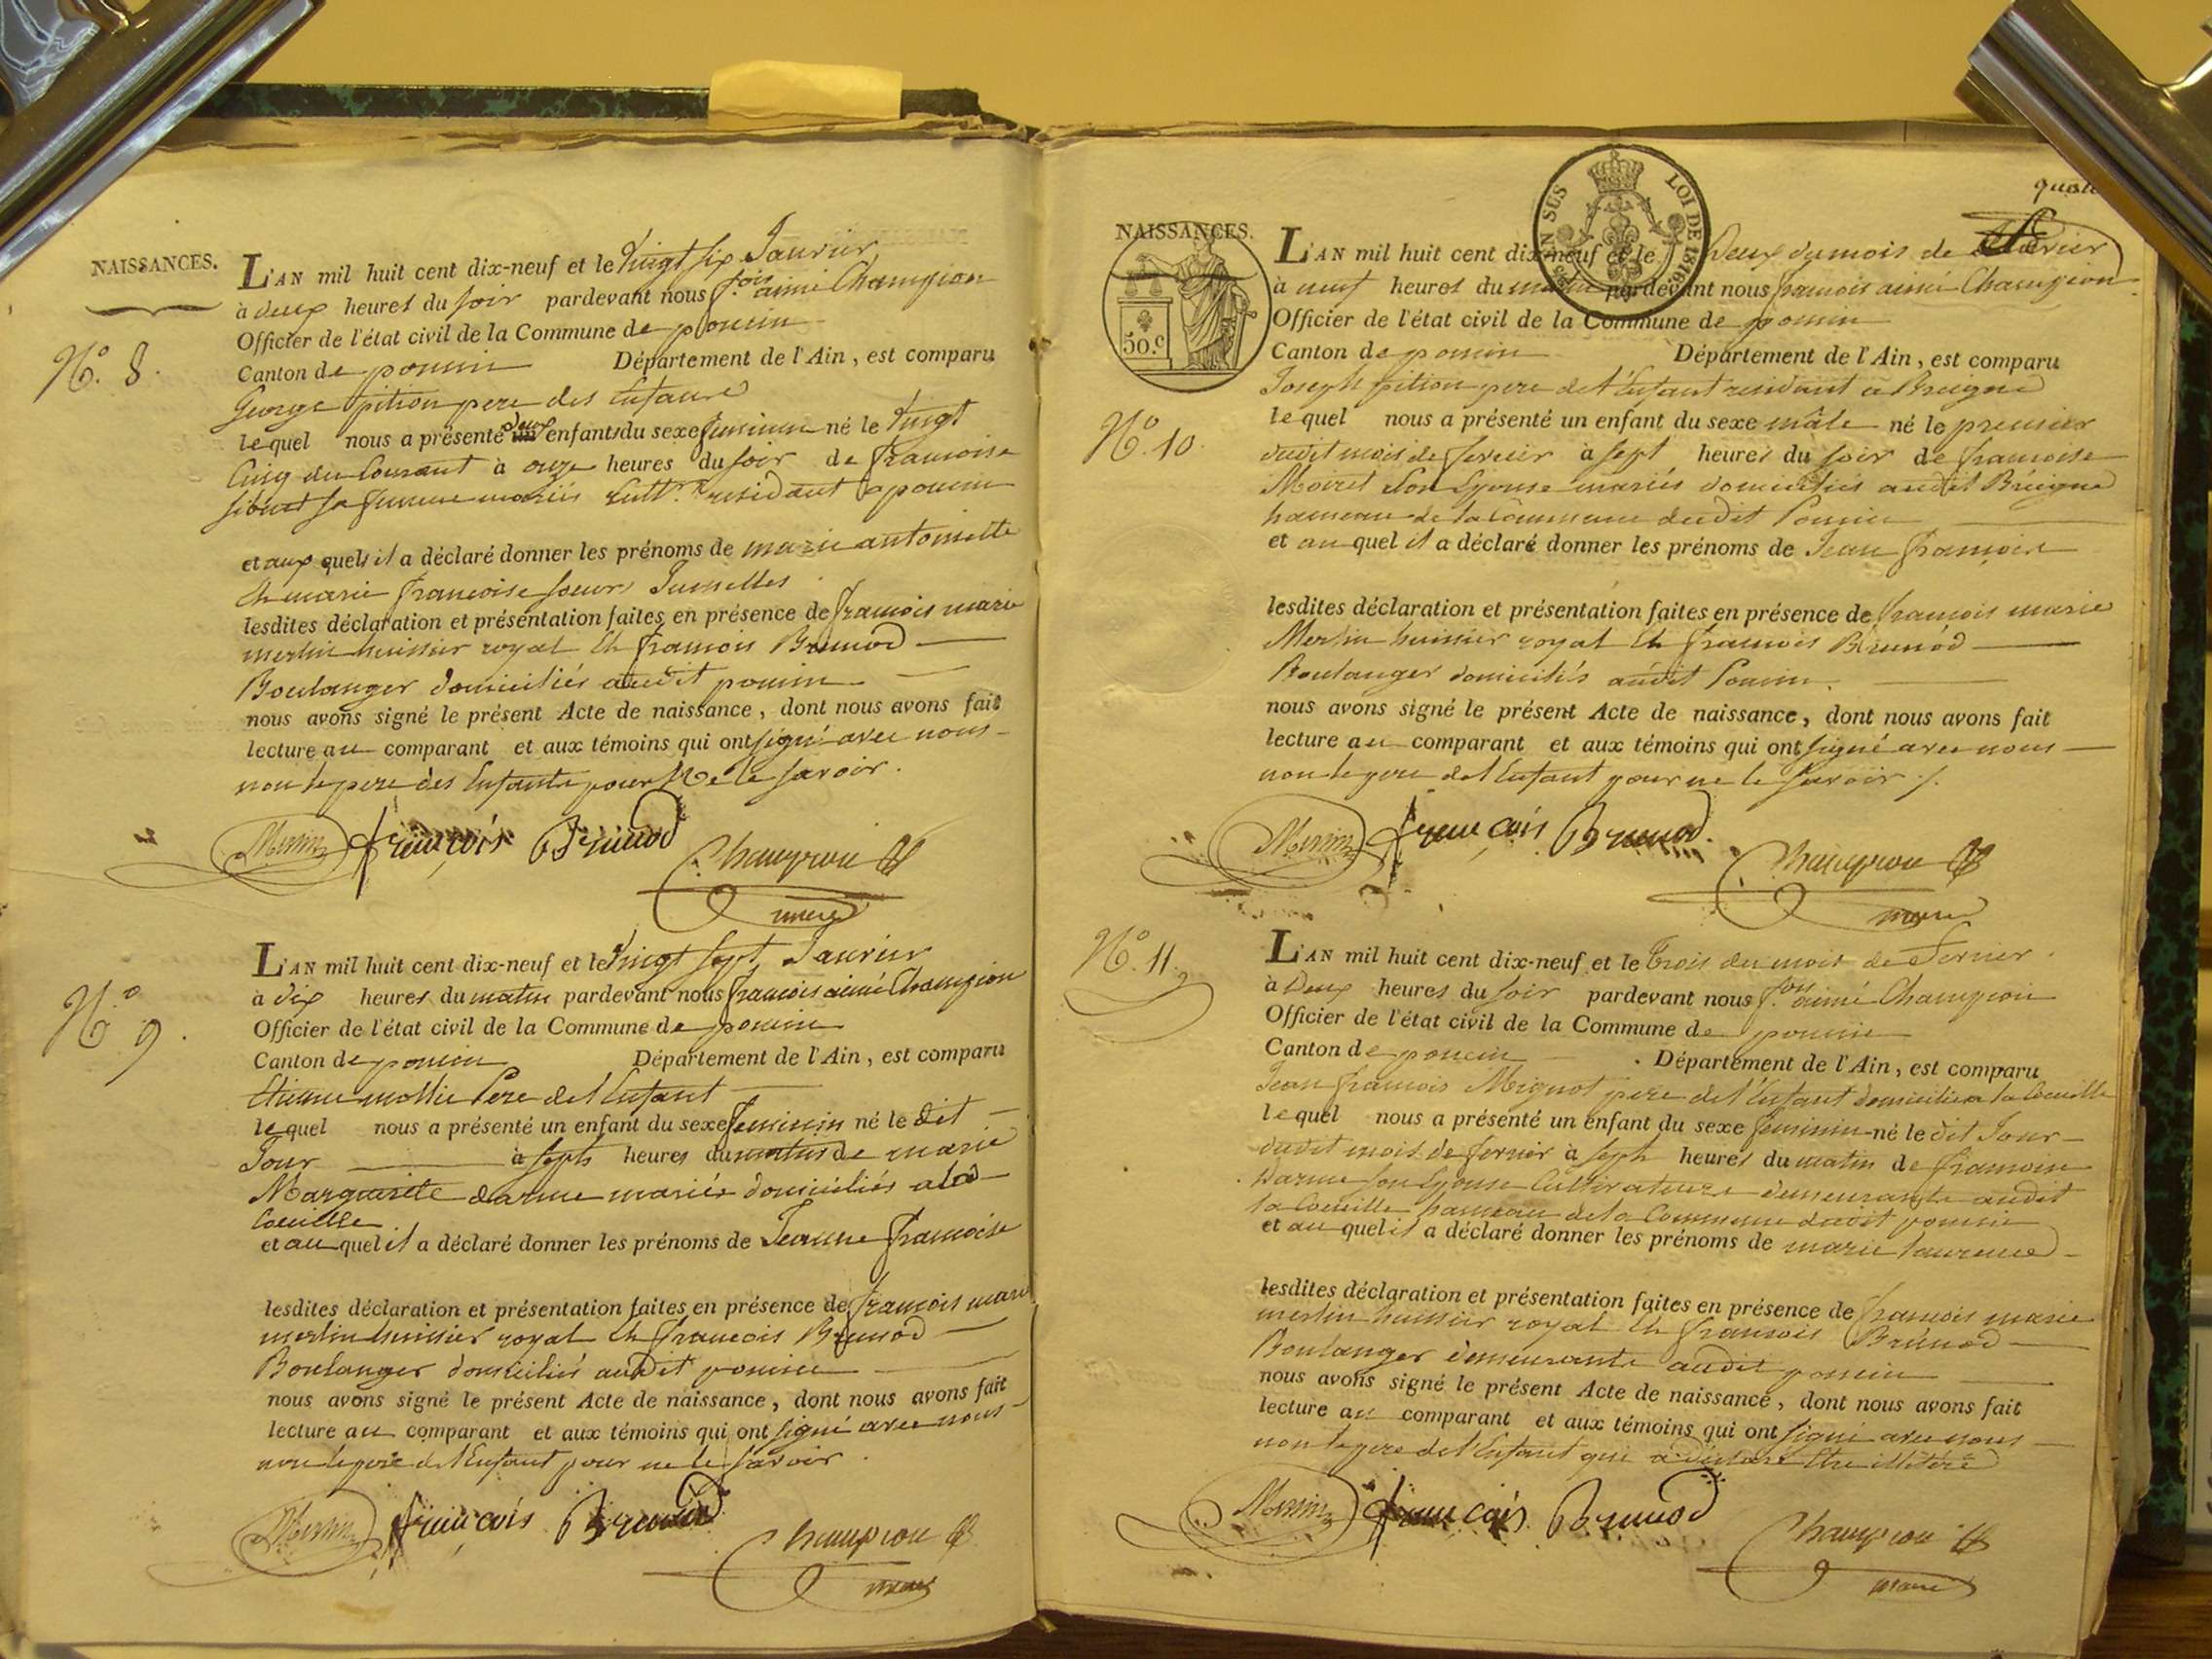 NAISSANCES.
N.° 8.
L'AN mil huit cent dix-neuf et le vingt six Janvier
à deux heures du soir pardevant nous f.ois aimé Champion
Officier de l'état civil de la Commune de poncin
Canton de poncin Département de l'Ain, est comparu
George pition pere des Enfants
lequel nous a présenté deux enfants du sexe feminin né le vingt
Cinq du Courant à onze heures du soir de francoise
sa femme mariés cultrs residant a poncin
et aux quels il a déclaré donner les prénoms de marie antoinette
Et marie francoise soeurs Jumelles
lesdites déclaration et présentation faites en présence de francois marie
merlin huissier royal Et francois Brunod
Boulanger domiciliés audit poncin
nous avons signé le présent Acte de naissance, dont nous avons fait
lecture au comparant et aux témoins qui ont signé avec nous
non le pere des Enfants pour Ne le savoir.
Merlin françois Brunod
Champion
maire
N.° 9.
L'AN mil huit cent dix-neuf et le vingt sept Janvier
à dix heures du matin pardevant nous francois aimé Champion
Officier de l'état civil de la Commune de poncin
Canton de poncin Département de l'Ain, est comparu
Etienne mollie Pere de l'Enfant
lequel nous a présenté un enfant du sexe feminin né le dit
Jour à sept heures du matin de marie
Marguerite darme mariés domiciliés a la
Coeuille.
et au quel il a déclaré donner les prénoms de Jeanne francoise
lesdites déclaration et présentation faites en présence de francois marie
merlin huissier royal Et francois Brunod
Boulanger domiciliés audit poncin
nous avons signé le présent Acte de naissance, dont nous avons fait
lecture au comparant et aux témoins qui ont signé avec nous
non le pere de l'Enfant pour ne le savoir.
Merlin françois Brunod
Champion
maire
NAISSANCES.
50.c
EN SUS
LOI DE 1816
N.° 10.
L'AN mil huit cent dix-neuf et le Deux du mois de fevrier
à neuf heures du matin pardevant nous francois aimé Champion
Officier de l'état civil de la Commune de poncin
Canton de poncin Département de l'Ain, est comparu
Joseph pition pere de l'Enfant residant a Breigne
lequel nous a présenté un enfant du sexe mâle né le premier
dudit mois de fevrier à sept heures du soir de francoise
Moiret Son Epouse mariés domiciliés audit Breigne
hameau de la Commune dudit Poncin
et au quel il a déclaré donner les prénoms de Jean françois
lesdites déclaration et présentation faites en présence de francois marie
Merlin huissier royal Et francois Brunod
Boulanger domiciliés audit Poncin.
nous avons signé le présent Acte de naissance, dont nous avons fait
lecture au comparant et aux témoins qui ont signé avec nous
non le pere de l'Enfant pour ne le savoir /.
Merlin françois Brunod.
Champion
maire
N.° 11.
L'AN mil huit cent dix-neuf et le trois du mois de Fevrier.
à Deux heures du soir pardevant nous f.ois aimé Champion
Officier de l'état civil de la Commune de poncin
Canton de poncin Département de l'Ain, est comparu
Jean francois Mignot pere de l'Enfant domicilié a la Coeuille
lequel nous a présenté un enfant du sexe feminin né le dit Jour
dudit mois de fevrier à sept heures du matin de francoise
Darme son Epouse Cultivateurs demeurants audit
la Coeuille hameau de la Commune dudit poncin
et au quel il a déclaré donner les prénoms de marie laurence
lesdites déclaration et présentation faites en présence de francois marie
merlin huissier royal Et francois Brunod
Boulanger demeurants audit poncin
nous avons signé le présent Acte de naissance, dont nous avons fait
lecture au comparant et aux témoins qui ont signé avec nous
non le pere de l'Enfant qui a declaré Etre illiteré
Merlin françois Brunod
Champion
maire